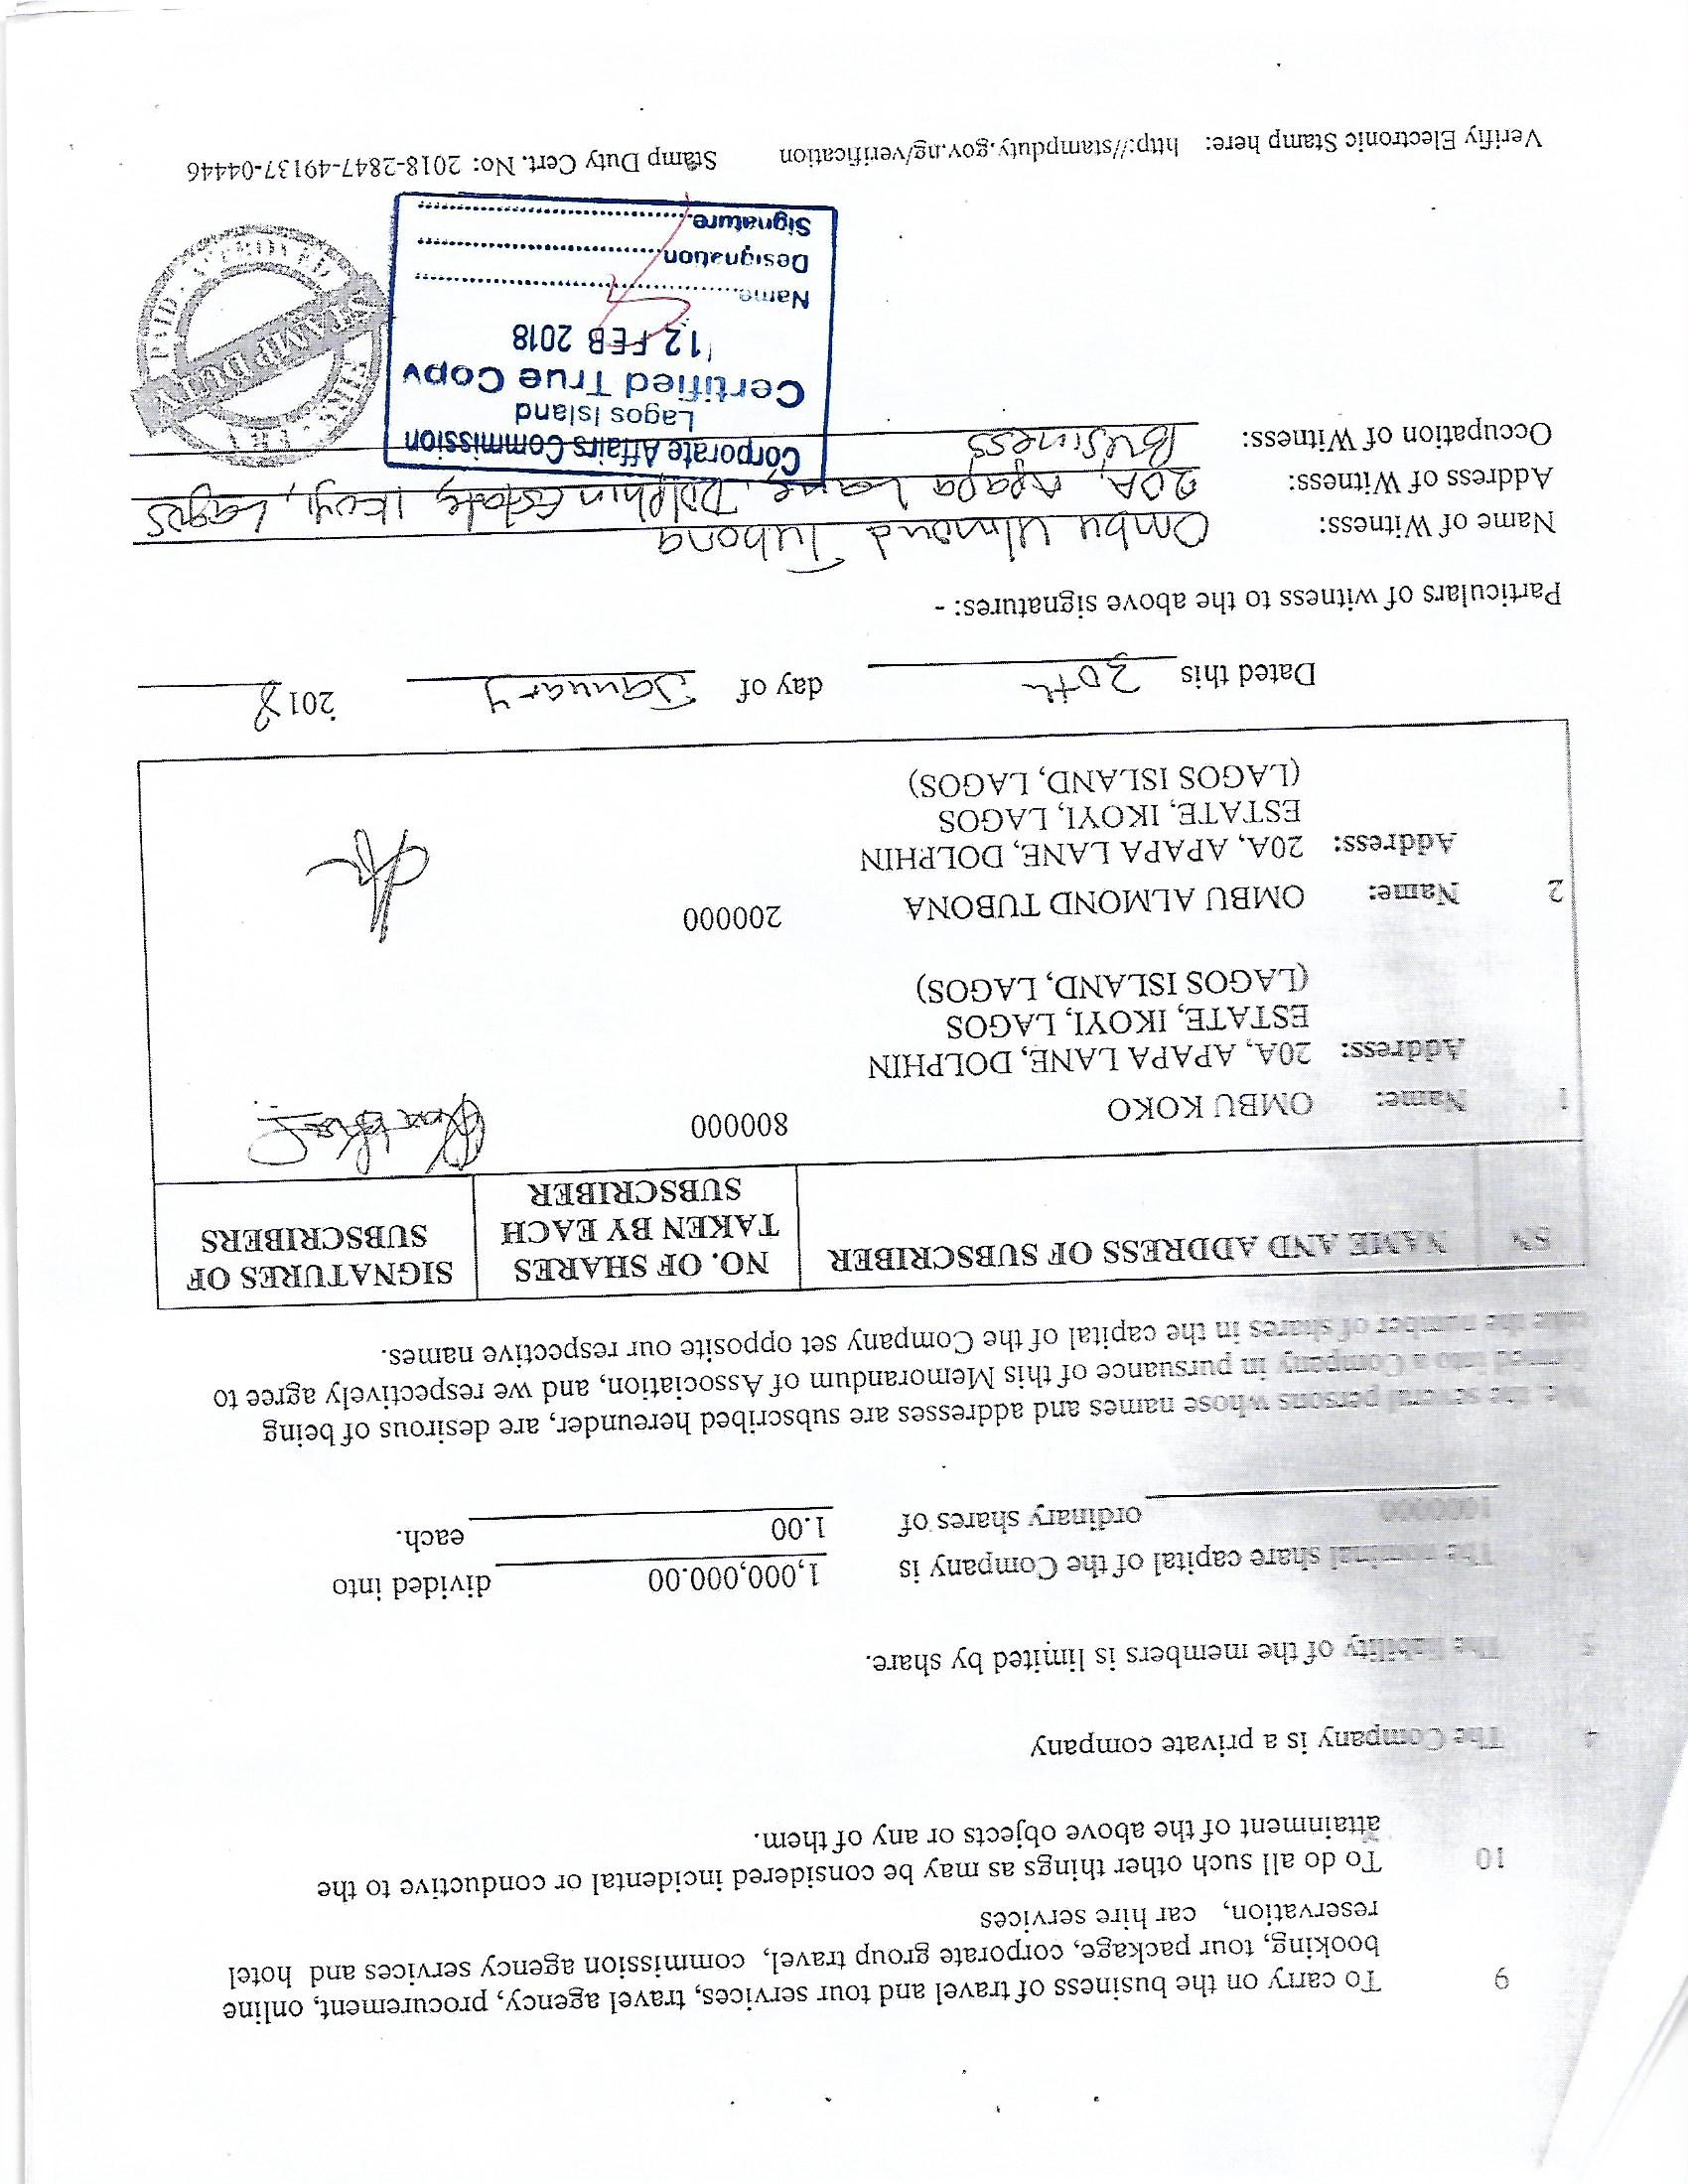 9 To carry on the business of travel and tour services, travel agency, procurement, online
booking, tour package, corporate group travel, commission agency services and hotel
reservation, car hire services
10 To do all such other things as may be considered incidental or conductive to the
attainment of the above objects or any of them.
4 The Company is a private company
5 The liability of the members is limited by share.
6. The nominal share capital of the Company is 1,000,000.00 divided into
1000000 ordinary shares of 1.00 each.
We, the several persons whose names and addresses are subscribed hereunder, are desirous of being
formed into a Company in pursuance of this Memorandum of Association, and we respectively agree to
take the number of shares in the capital of the Company set opposite our respective names.
SN NAME AND ADDRESS OF SUBSCRIBER NO. OF SHARES TAKEN BY EACH SUBSCRIBER SIGNATURES OF SUBSCRIBERS
1 Name: OMBU KOKO 800000
Address: 20A, APAPA LANE, DOLPHIN
ESTATE, IKOYI, LAGOS
(LAGOS ISLAND, LAGOS)
2 Name: OMBU ALMOND TUBONA 200000
Address: 20A, APAPA LANE, DOLPHIN
ESTATE, IKOYI, LAGOS
(LAGOS ISLAND, LAGOS)
Dated this 30th day of January 2018
Particulars of witness to the above signatures: -
Name of Witness: Ombu Almond Tubona
Address of Witness: 20A, Apapa Lane, Dolphin Estate, Ikoyi, Lagos
Occupation of Witness: Business
Corporate Affairs Commission
Lagos Island
Certified True Copy
12 FEB 2018
Name
Designation
Signature
STAMP DUTY
Verifiy Electronic Stamp here: http://stampduty.gov.ng/verification Stamp Duty Cert. No: 2018-2847-49137-04446